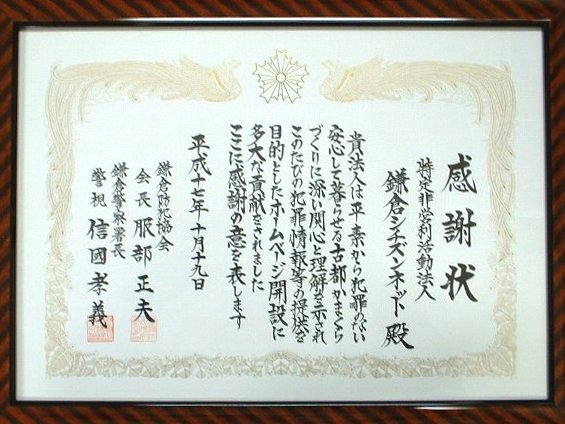 感謝状
特定非営利活動法人
鎌倉シチズンネット殿
貴法人は平素から犯罪のない
安心して暮らせる古都かまくら
づくりに深い関心と理解を示され
このたびの犯罪情報等の提供を
目的としたホームページ開設に
多大な貢献をされました
ここに感謝の意を表します
平成十七年十月十九日
鎌倉防犯協会
会長服部正夫
鎌倉警察署長
警視信國孝義